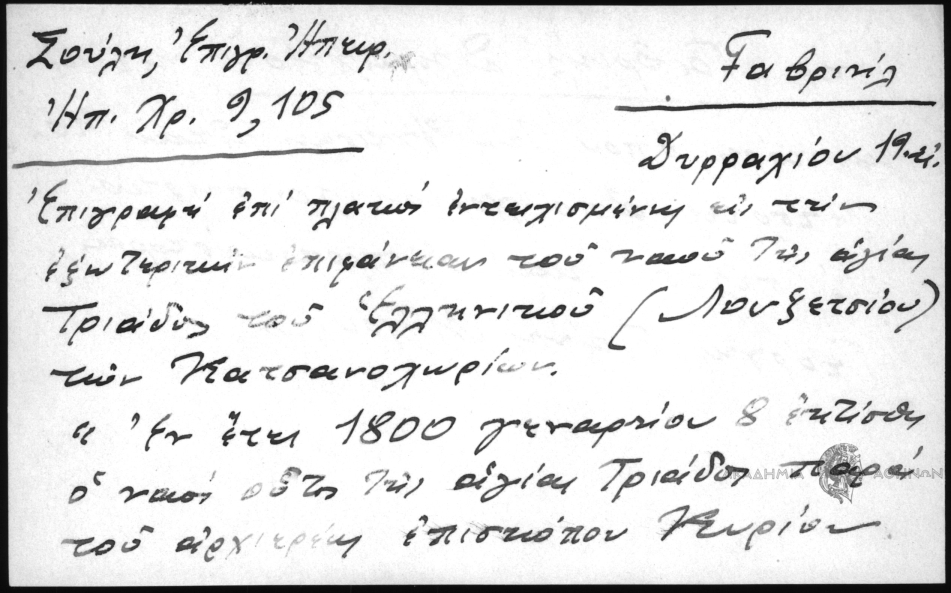 Σούλη, Ἐπιγρ. Ἠπειρ.
Ἠπ. Χρ. 9, 105
Γαβριήλ
Δυρραχίου 19. αἰ.
Ἐπιγραφή ἐπί πλακός ἐντειχισμένης εἰς τήν
ἐξωτερικήν ἐπιφάνειαν τοῦ ναοῦ τῆς ἁγίας
Τριάδος τοῦ Ἑλληνικοῦ (Λουξετσίου)
τῶν Κατσανοχωρίων.
"Ἐν ἔτει 1800 γεναρίου 8 ἐκτίσθη
ὁ ναός οὗτος τῆς ἁγίας Τριάδος παρά
τοῦ ἀρχιερέως ἐπισκόπου Κυρίου
ΑΚΑΔΗΜΙΑ ΑΘΗΝΩΝ